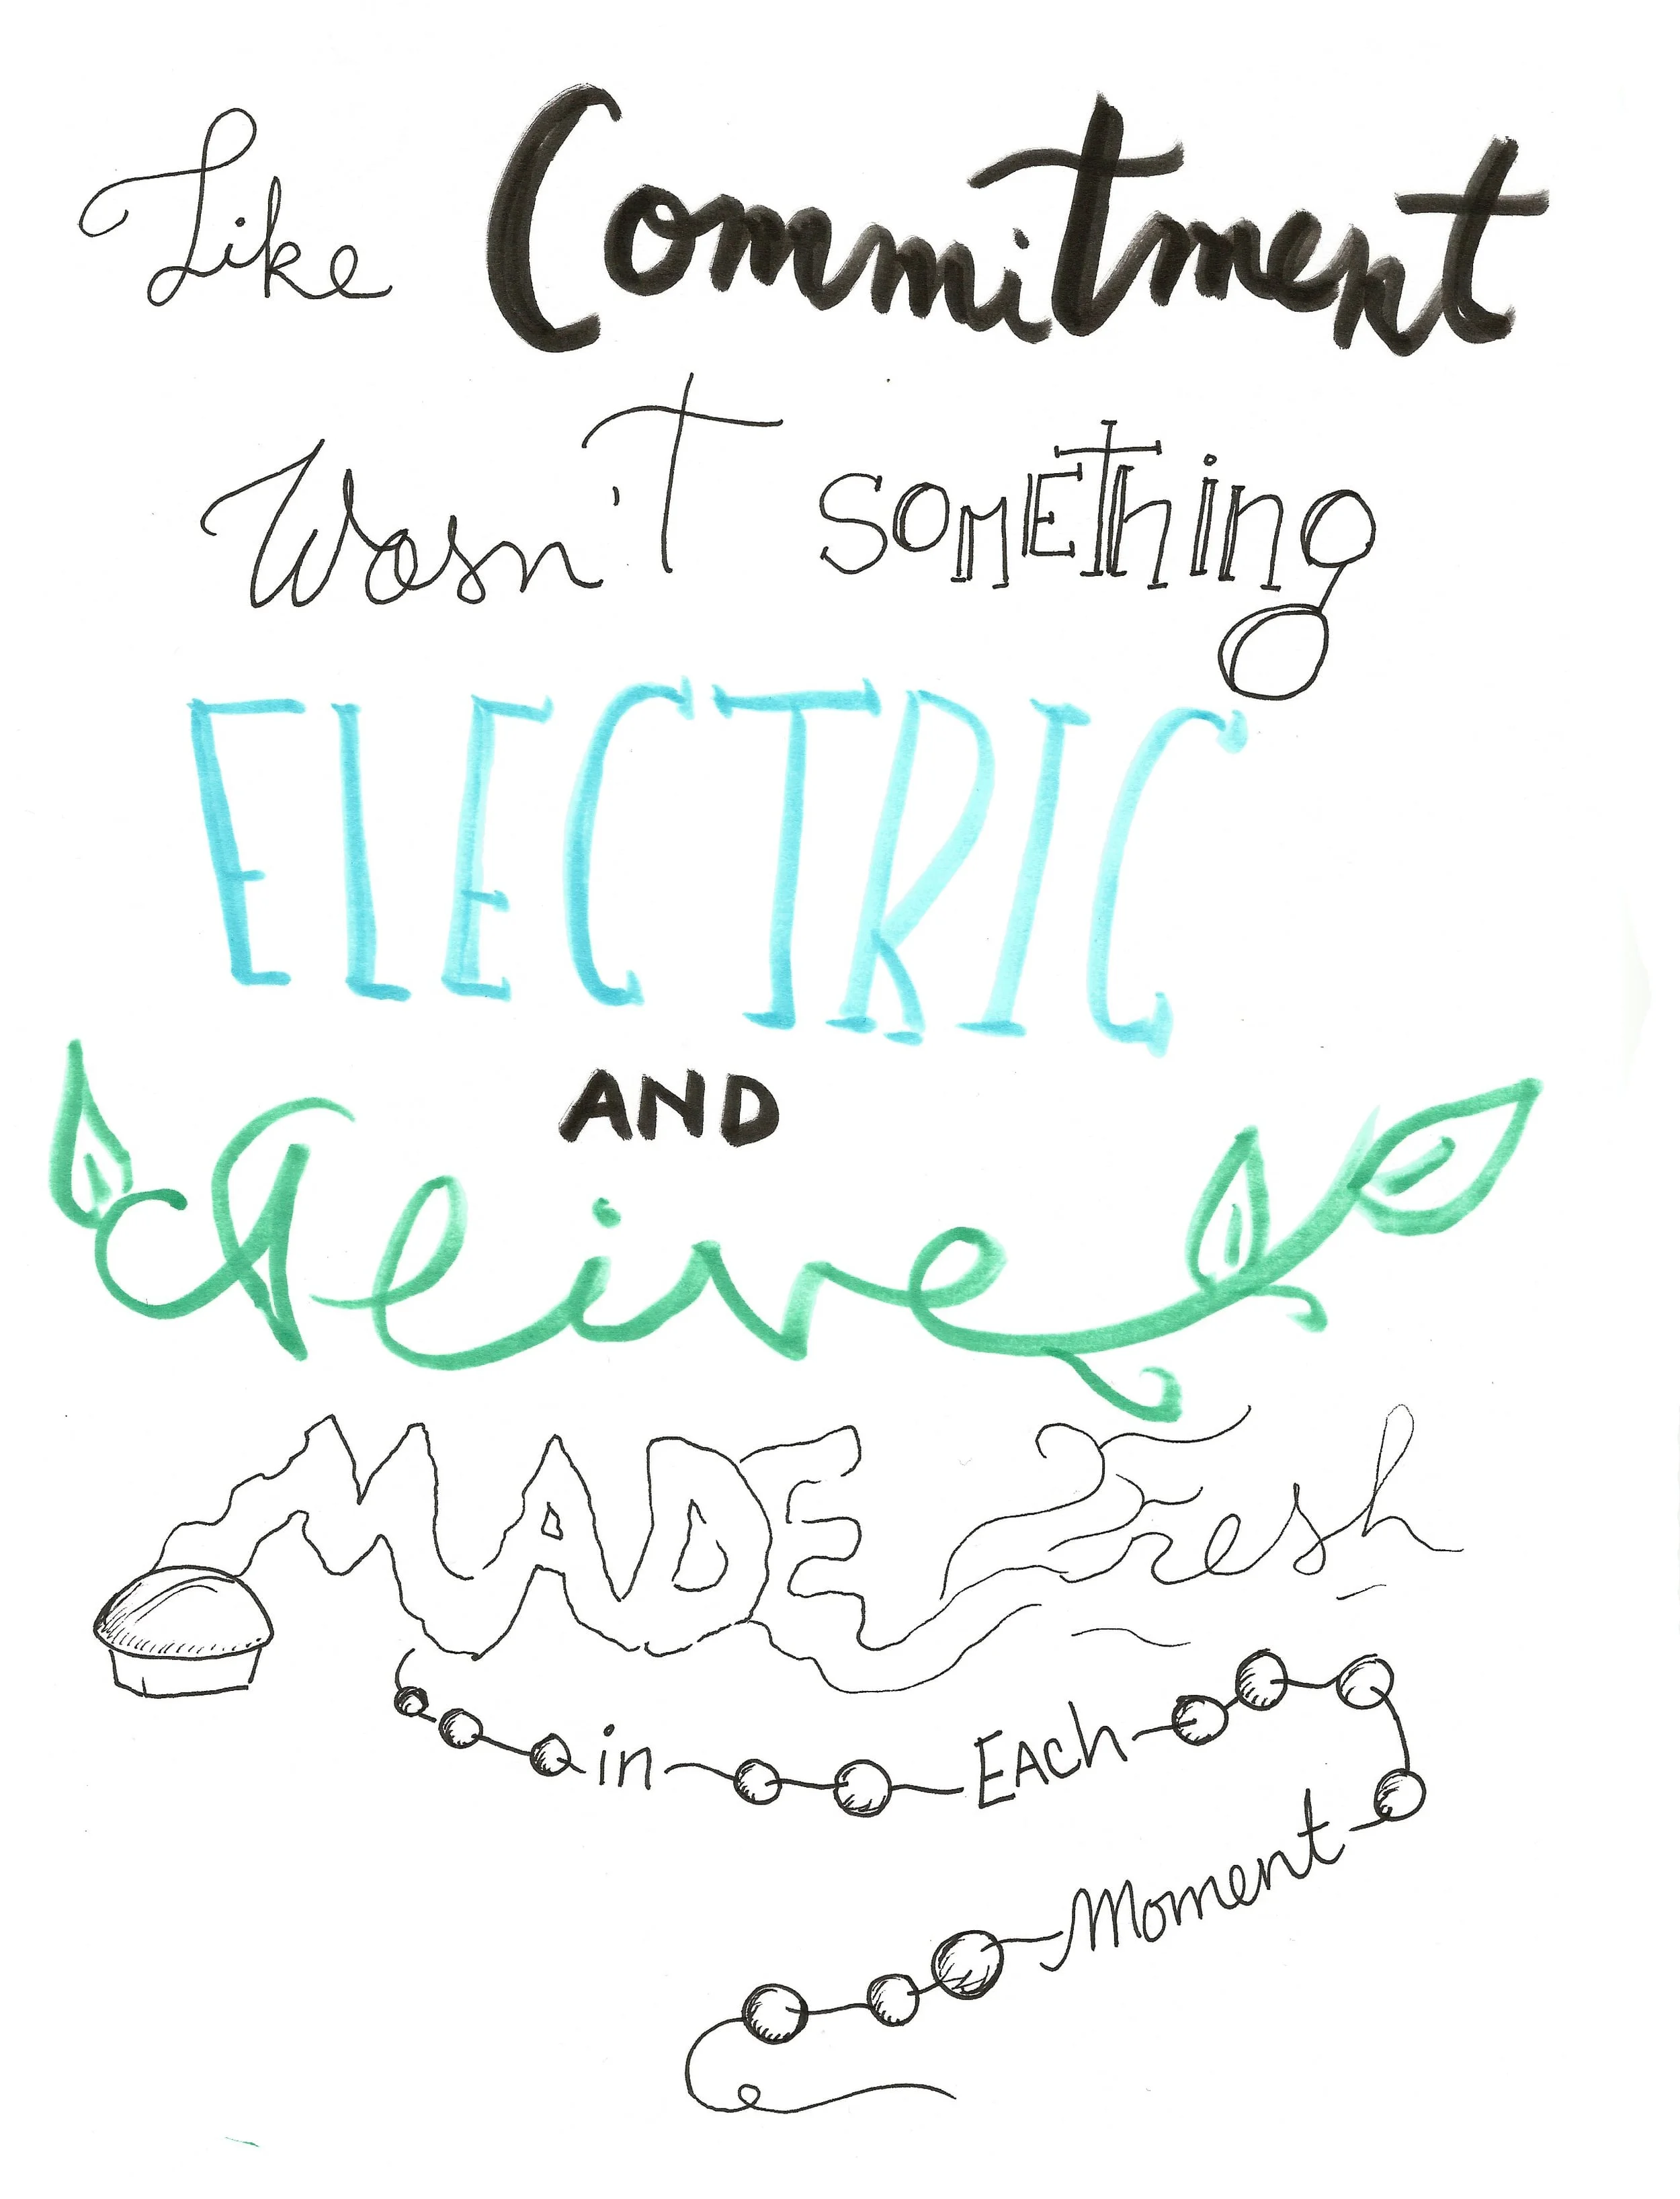 Like Commitment
Wasn't SOMEThing
ELECTRIC
AND
Alive
MADE Fresh
in EACh
Moment